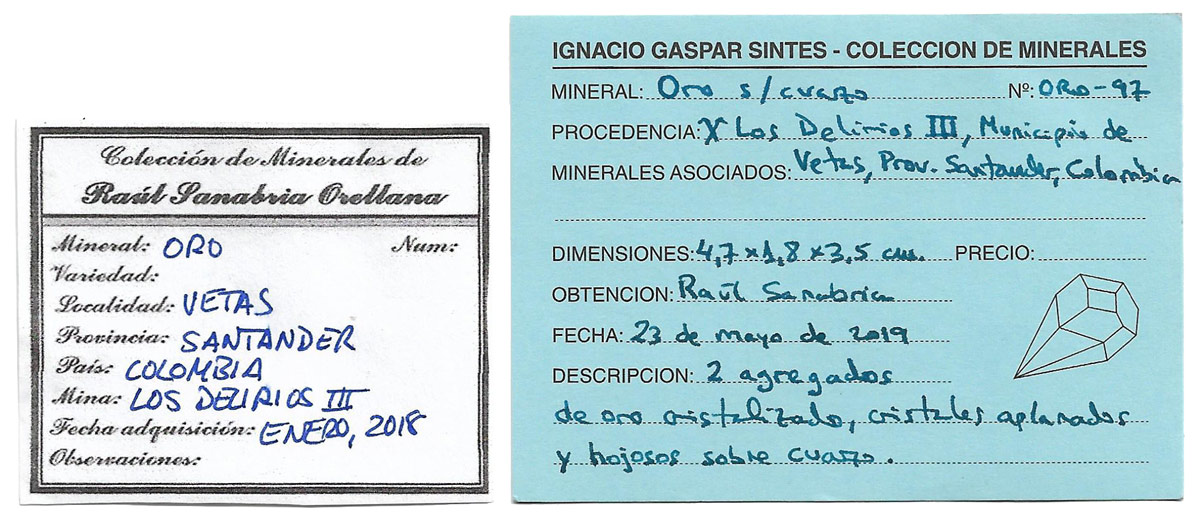 Colección de Minerales de
Raúl Sanabria Orellana
Mineral: ORO Num:
Variedad:
Localidad: VETAS
Provincia: SANTANDER
País: COLOMBIA
Mina: LOS DELIRIOS III
Fecha adquisición: ENERO, 2018
Observaciones:
IGNACIO GASPAR SINTES - COLECCION DE MINERALES
MINERAL: Oro s/cuarzo Nº: ORO-97
PROCEDENCIA: Los Delirios III, Municipio de
MINERALES ASOCIADOS: Vetas, Prov. Santander, Colombia
DIMENSIONES: 4,7 x 1,8 x 3,5 cm. PRECIO:
OBTENCION: Raúl Sanabria
FECHA: 23 de mayo de 2019
DESCRIPCION: 2 agregados
de oro cristalizado, cristales aplanados
y hojosos sobre cuarzo.